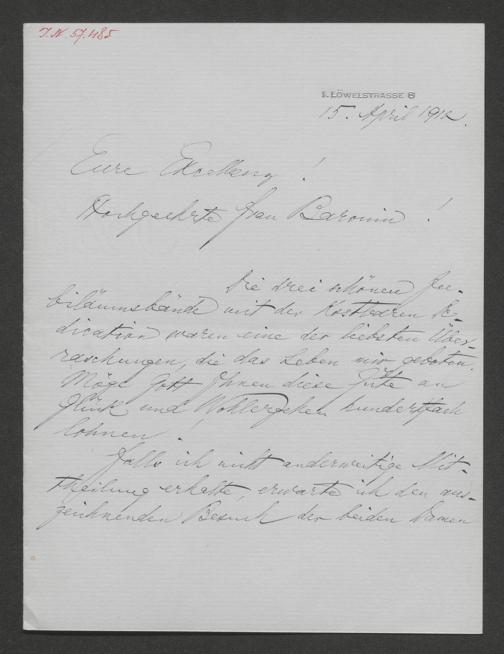 J.N. 57.485
I. LÖWELSTRASSE 8
15. April 1912.
Eure Excellenz!
Hochgeehrte Frau Baronin!
Die drei schönen Ju-
biläumsbände mit der kostbaren De-
dication waren eine der liebsten Über-
raschungen, die das Leben mir geboten.
Möge Gott Ihnen diese Güte an
Glück und Wohlergehen hundertfach
lohnen!
Falls ich nicht anderweitige Mit-
theilung erhalte, erwarte ich den aus-
zeichnenden Besuch der beiden Damen